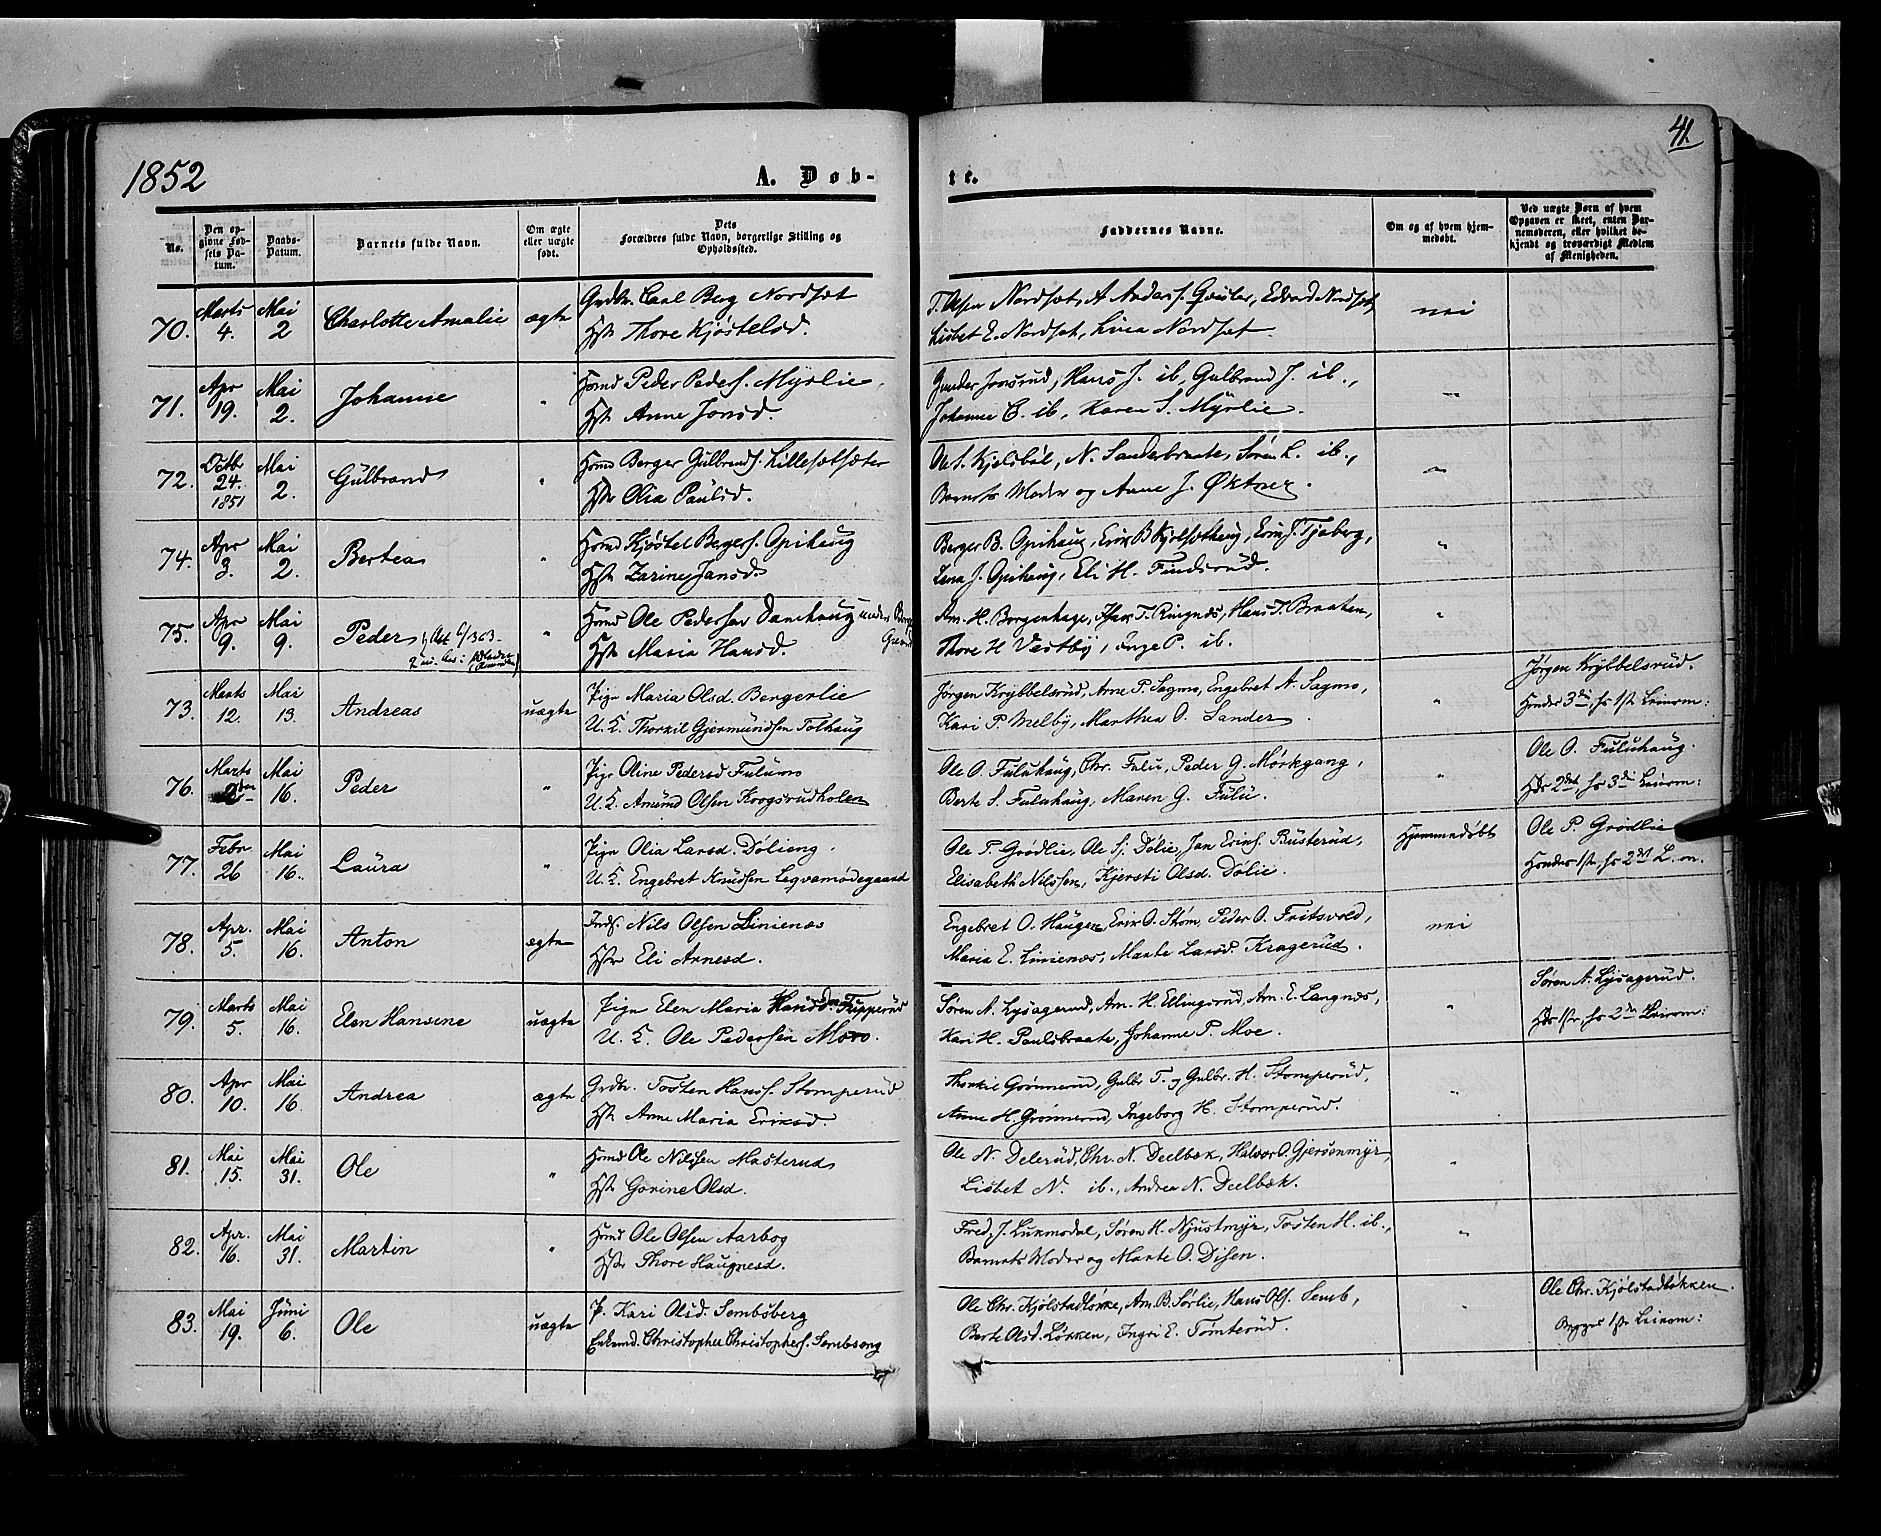 1852
A. Døb-
te.
41
No.
Den op-
givne Fød-
sels Da-
tum.
Daabs-
Datum.
Barnets fulde Navn.
Om ægte
eller uægte
født.
Dets
Forældres fulde Navn, borgerlige Stilling og
Opholdssted.
Faddernes Navne.
Om og af hvem hjem-
medøbt.
Ved uægte Børn af hvem
Opgaven er skeet, enten Bar-
nemoderen, eller hvilket be-
kjendt og troværdigt Medlem
af Menigheden.
70. Marts 4. Mai 2 Charlotte Amalie ægte
Grdbr. Carl Berg Nordsæt
Hst. Thore Kjøstelsd.
T. Olsen Nordsæt, A. Anders. Edvard Nordsæt,
Lisbet E. Nordsæt, Livea Nordsæt
nei
71. Apr 19. Mai 2. Johanne "
Hsmd Peder Peders. Myrlie
Hst. Anne Jonsd.
Gunder Joasrud, Hans J. ib, Gulbrand J. ib.,
Johanne C. ib, Karen S. Myrlie.
"
72. Octbr 24. 1851 Mai 2. Gulbrand "
Hsmd Berger Gulbrands. Lillesætsæter
Hst Olia Paulsd.
Ole S. Kjelsbøl, N. Sanderbraate, Søren L. ib.,
Barnets Moder og Anne J. Øktner.
"
74. Apr 3. Mai 2. Bertea "
Hsmd Kjøstel Bergers. Opihaug
Hst. Zarine Jansd
Berger B. Opihaug, Erik B Kjølsæthaug, Erik J. Tjaberg,
Lena J. Opihaug, Eli H. Findsrud.
"
75. Apr 9. Mai 9. Peder "
Hsmd Ole Pedersen Damhaug under
Hst. Maria Hansd.
Am. H. Borgenhage, T. Ringnes, Hans T. Braaten,
Thore H Vestby, Inge P. ib.
"
73. Marts 12. Mai 13. Andreas uægte
Pige Maria Olsd. Bergerlie
U. K. Thorkil Gjermundsen Tolhaug
Jørgen Krybbelsrud, Arne P. Sagmo, Engebret A. Sagmo,
Kari P. Melby, Marthea O. Sander.
"
Jørgen Krybbelsrud.
Hendes 3die, hs 1ste Leierm:
76. Marts Mai 16. Peder "
Pige Oline Pedersd Fulum
U. K. Amund Olsen Krogsrudholen
Ole O. Fuluhaug, Chr. Fulu, Peder G. Mørkgang,
Berte S. Fuluhaug, Maren G. Fulu.
"
Ole O. Fuluhaug.
Hds 2det, hs 3die Leierm:
77. Febr 26 Mai 16. Laura "
Pige Olia Larsd. Dølieng.
U. K. Engebret Knudsen Legvamodegaard
Ole P. Grødlie, Ole Sj. Dølie, Jan Eriks. Busterud,
Elisabeth Nilssen, Kjersti Olsd. Dølie.
Hjemmedøbt
Ole P. Grødlie
Hendes 1ste, hs 2det L. m.
78. Apr. 5. Mai 16. Anton ægte
Inds. Nils Olsen Linienæs
Hst Eli Arnesd.
Engebret O. Haugen, Erik O. Strøm, Peder O. Fritsvold,
Maria E. Linienæs, Marte Larsd. Kragerud.
nei
79. Marts 5. Mai 16. Elen Hansine uægte
Pige Elen Maria Hansd. Tupperud
U. K. Ole Pedersen Moe.
Søren A. Lysagerud, Am. H. Ellingsrud, Am. E. Langnæs,
Kari H. Paulsbraate, Johanne P. Moe.
"
Søren A. Lysagerud.
Hds 1ste, hs 2det Leierm:
80. Apr 10. Mai 16. Andrea ægte
Grdbr. Tosten Hanss. Stomperud
Hst. Anne Maria Eriksd.
Thorkil Grønnerud, Gulbr T. og Gulbr. H. Stomperud,
Anne H. Grønnerud, Ingeborg H. Stomperud.
"
81. Mai 15. Mai 31. Ole "
Hsmd Ole Nilssen Masterud
Hst. Gorine Olsd.
Ole N. Delerud, Chr. N. Deelbæk, Halvor O. Gjersønmyr,
Lisbet N. ib., Andrea N. Deelbæk.
"
82. Apr. 16. Mai 31. Martin "
Hsmd Ole Olsen Aarbog
Hst Thore Haugnesd.
Fred. J. Lukmodal, Søren H. Njustmyr, Tosten H. ib.,
Barnets Moder og Marte O. Disen.
"
83. Mai 19. Juni 6. Ole uægte
P. Kari Olsd. Sembsberg
Enkemd. Christopher Christophers. Sembseng
Ole Chr. Kjølstadløkke, Am. B. Sørlie, Hans Ols. Semb,
Berte Olsd. Løkken, Ingri E. Tømterud.
"
Ole Chr. Kjølstadløkken.
Begges 1ste Leierm: